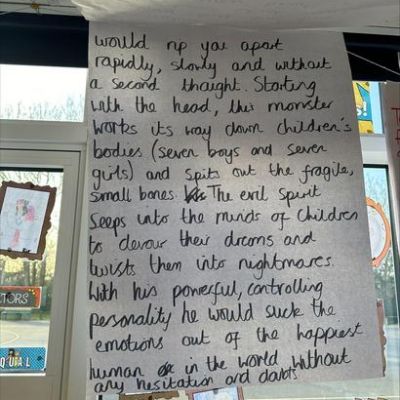 would rip you apart
rapidly, slowly and without
a second thought. Starting
with the head, this monster
works its way down children's
bodies (seven boys and seven
girls) and spits out the fragile,
small bones The evil spirit
seeps into the minds of children
to devour their dreams and
twists them into nightmares.
With his powerful, controlling
personality he would suck the
emotions out of the happiest
human in the world without
any hesitation and
TORS